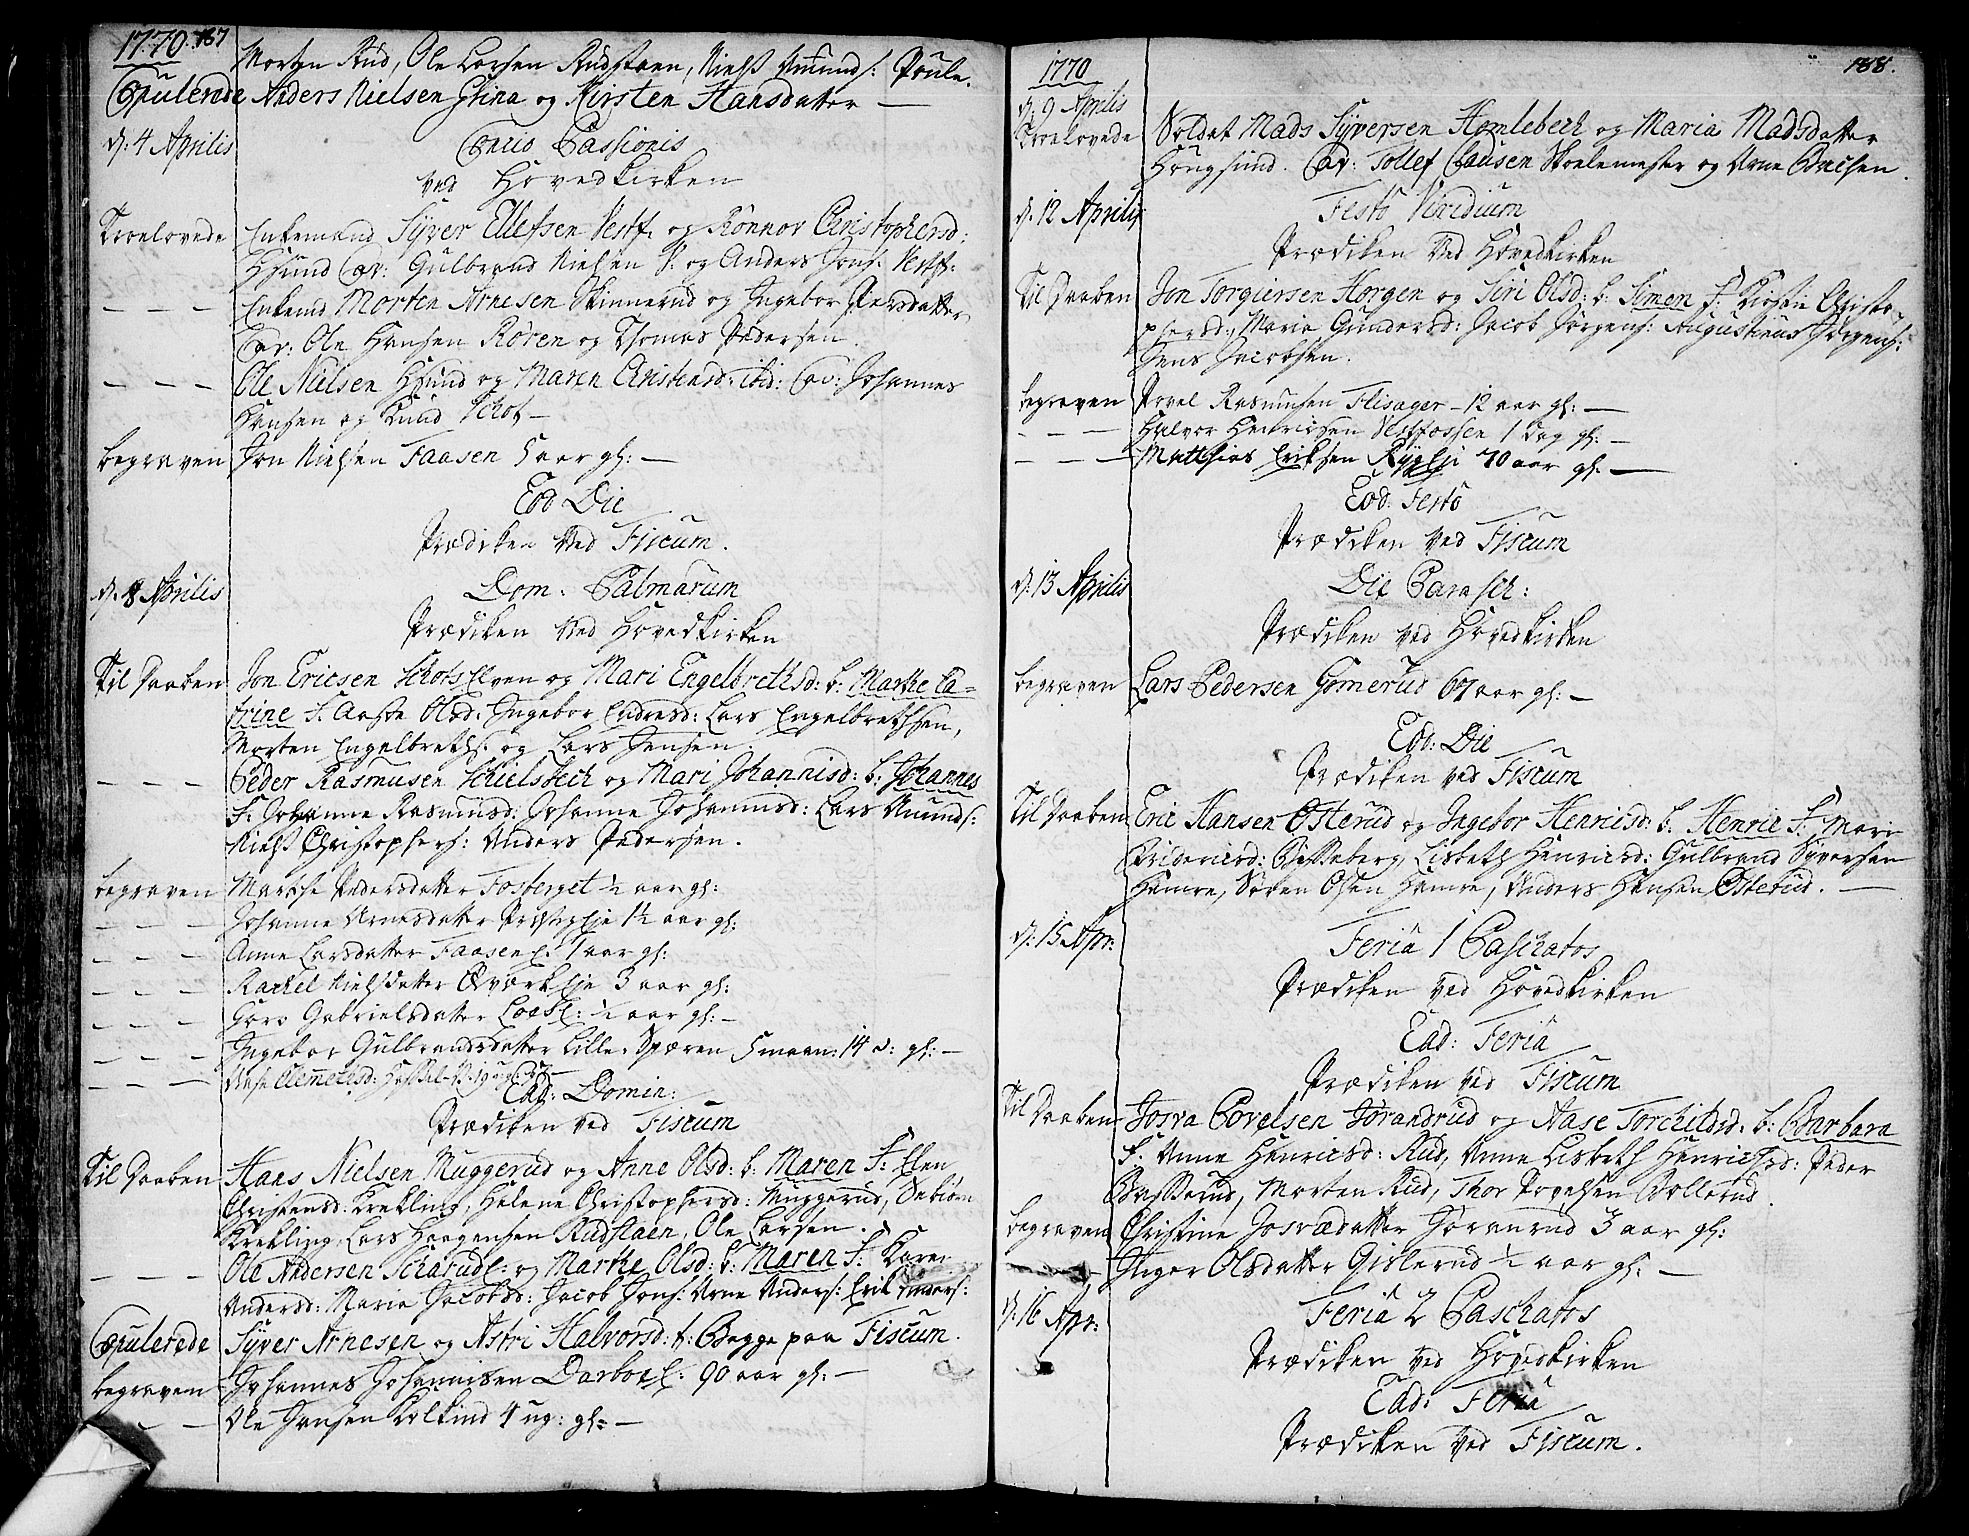 1770. 187
Morten Rud, Ole Larsen Rudstaen, Niels Amunds: Poule.
Copulerede Anders Nielsen Grina og Kirsten Hansdatter —
d: 4 Aprilis Concio Passionis
ved Hovedkirken
Troelovede Enkemand Syver Ellefsen Vestf. og Rønnov Christophersd:
Hsund Cav: Gulbrand Nielsen S: og Anders Jons: Vestf:
— — — Enkemd Morten Arnesen Skinnerud og Ingebor Piersdatter
Cav: Ole Hansen Røren og Thomas Pedersen.
— — — Ole Nielsen Hsund og Maren Christensd: ibid: Cav: Johannes
Hansen og Knud Schot —
begraven Jon Nielsen Faasen 5 aar gl: —
Eod Die
Prædiken ved Fiscum.
d. 8 Aprilis Dom. Palmarum
Prædiken ved Hovedkirken
Til Daaben Jon Ericsen Schots Elven og Mari Engelbrethsd: b: Marthe Ca-
trine F. Aaste Olsd: Ingebor Endresd: Lars Engelbrethsen,
Morten Engelbreths: og Lars Jensen.
— — — Peder Rasmusen Schielsbech og Mari Johannisd: b: Johannes
F: Johanne Rasmusd: Johanne Johannisd: Lars Amunds:
Niels Christophers: Anders Pedersen.
begraven Marthe Pedersdatter Fosberget ½ aar gl:
— — — Johanne Arnesdatter Præsteg Eje 1½ aar gl:
— — — Anne Larsdatter Faasen E. 1 aar gl:
— — — Rachel Nielsdatter Qværk Eje 3 aar gl:
— — — Goro Gabrielsdatter Loesl: ½ aar gl: —
— — — Ingebor Gulbrandsdatter Lille. Spæren 5 maan: 14 d: gl: —
— — — Clemetsd:
Ead: Domin:
Prædiken ved Fiscum
Til Daaben Hans Nielsen Muggerud og Anne Olsd: b: Maren F: Ellen
Christensd: Krekling, Helene Christophersd: Muggerud,
Krekling, Lars Haagensen Rudstaen, Ole Larsen.
— — — Ole Andersen Scharud E: og Marthe Olsd: b: Maren F: Karen
Andersd: Maria Jacobsd: Jacob Jons: Arne Anders: Erik Anders:
Copulerede Syver Arnesen og Astri Halvorsd: f: Begge paa Fiscum.
begraven Johannes Johannisen Darbo E: 90 aar gl: —
— — Ole Jensen Kolkind 4 ug: gl: —
1770 188.
d: 9 Aprilis
Troelovede Soldat Mads Syversen Hamlebech og Maria Madsdatter
Hougsund. Cav: Tollef Clausen Skolemester og Arne
d: 12 Aprilis Festo Viridium
Prædiken ved Hovedkirken
Til Daaben Jon Torgiersen Horgen og Siri Olsd: b: Simen F: Kirsti Christo-
phersd:, Maria Gundersd: Jacob Jørgens: Augustinus Jørgens:
Jens Jacobsen.
begraven Povel Rasmusen Flisager — 12 aar gl: —
— — — Halvor Henricsen Vestfossen 1 Dag gl: —
— — — Matthias Eriksen Ryg Eje 70 aar gl: —
Eod: Festo
Prædiken ved Fiscum
d: 13 Aprilis Die Parasch:
Prædiken ved Hovedkirken
begraven Lars Pedersen Gomerud 67 aar gl: —
Eod: Die
Prædiken ved Fiscum
Til Daaben Eric Hansen Østerud og Ingebor Henricsd: b. Henric F: Mari
Fridericsd: Besseberg, Lisbeth Henricsd: Gulbrand Syversen
Hamre, Søren Olsen Hamre, Anders Hansen Østerud. —
d: 15 Apr: Feria 1 Paschatos
Prædiken ved Hovedkirken
Ead: Feria
Prædiken ved Fiscum
Til Daaben Josva Povelsen Jørandrud og Aase Torchildsd. b: Barbara
F: Anne Henricsd: Rud, Anne Lisbeth Henrichsd: Peder
Basserud, Morten Rud, Thor Povelsen Bollerud.
begraven Christine Josvædatter Jøranrud 3 aar gl:
— Inger Olsdatter Gislerud ½ aar gl: —
d: 16 Apr: Feria 2 Paschatos
Prædiken ved Hovedkirken
Ead: Feria
Prædiken ved Fiscum.